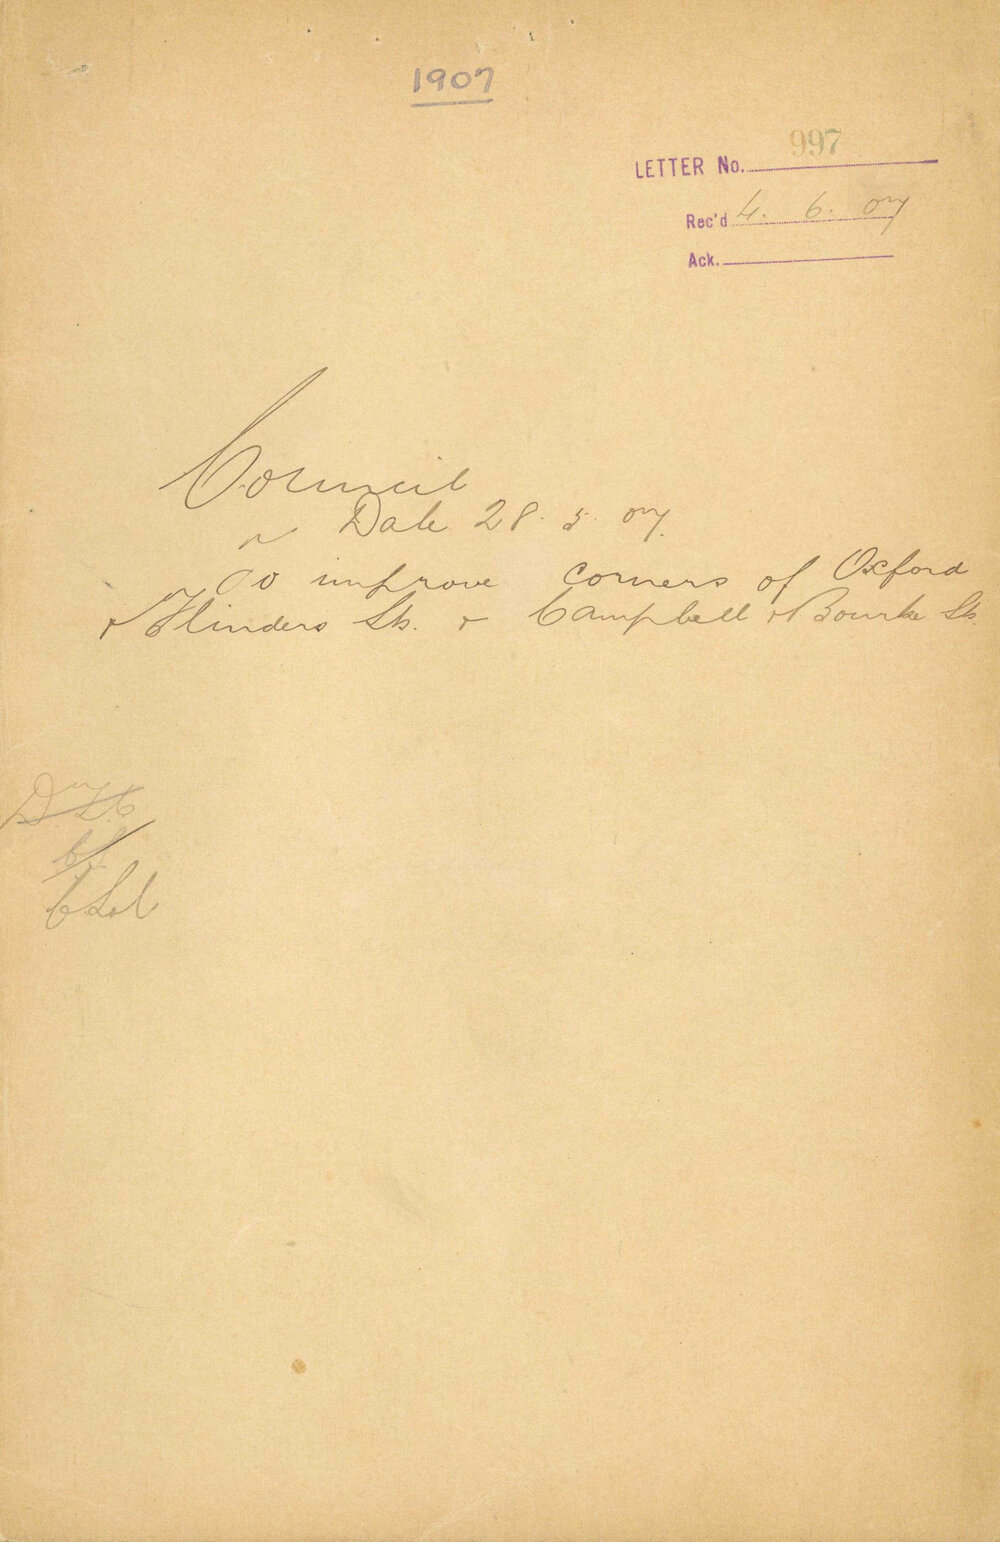 1907
LETTER No. 997
Rec'd 4. 6. 07
Ack.
Council
Date 28. 5. 07.
To improve corners of Oxford
& Flinders Sts. & Campbell & Bourke Sts.